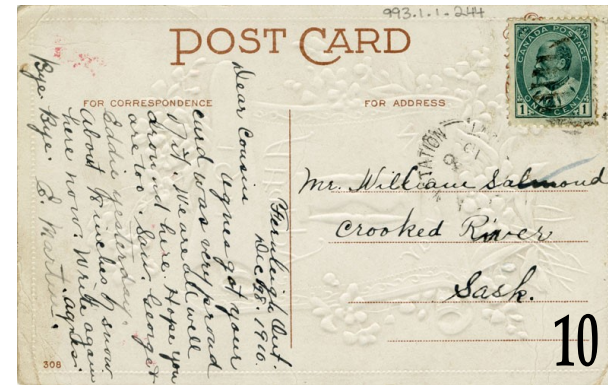 993.1.1-244
POST CARD
CANADA POSTAGE
1 ONE CENT 1
FOR CORRESPONDENCE
FOR ADDRESS
STATION
Fernleigh Ont.
Dec, 28. 1910.
Dear Cousin
Agnes got your
card was very proud
of it. We are all well
around here. Hope you
are too. Saw George &
Eddie yesterday.
About 8 inches of snow
here now. Write again
Bye Bye. E. Martin.
Agnes.
Mr. William Salmond
Crooked River
Sask.
308
10